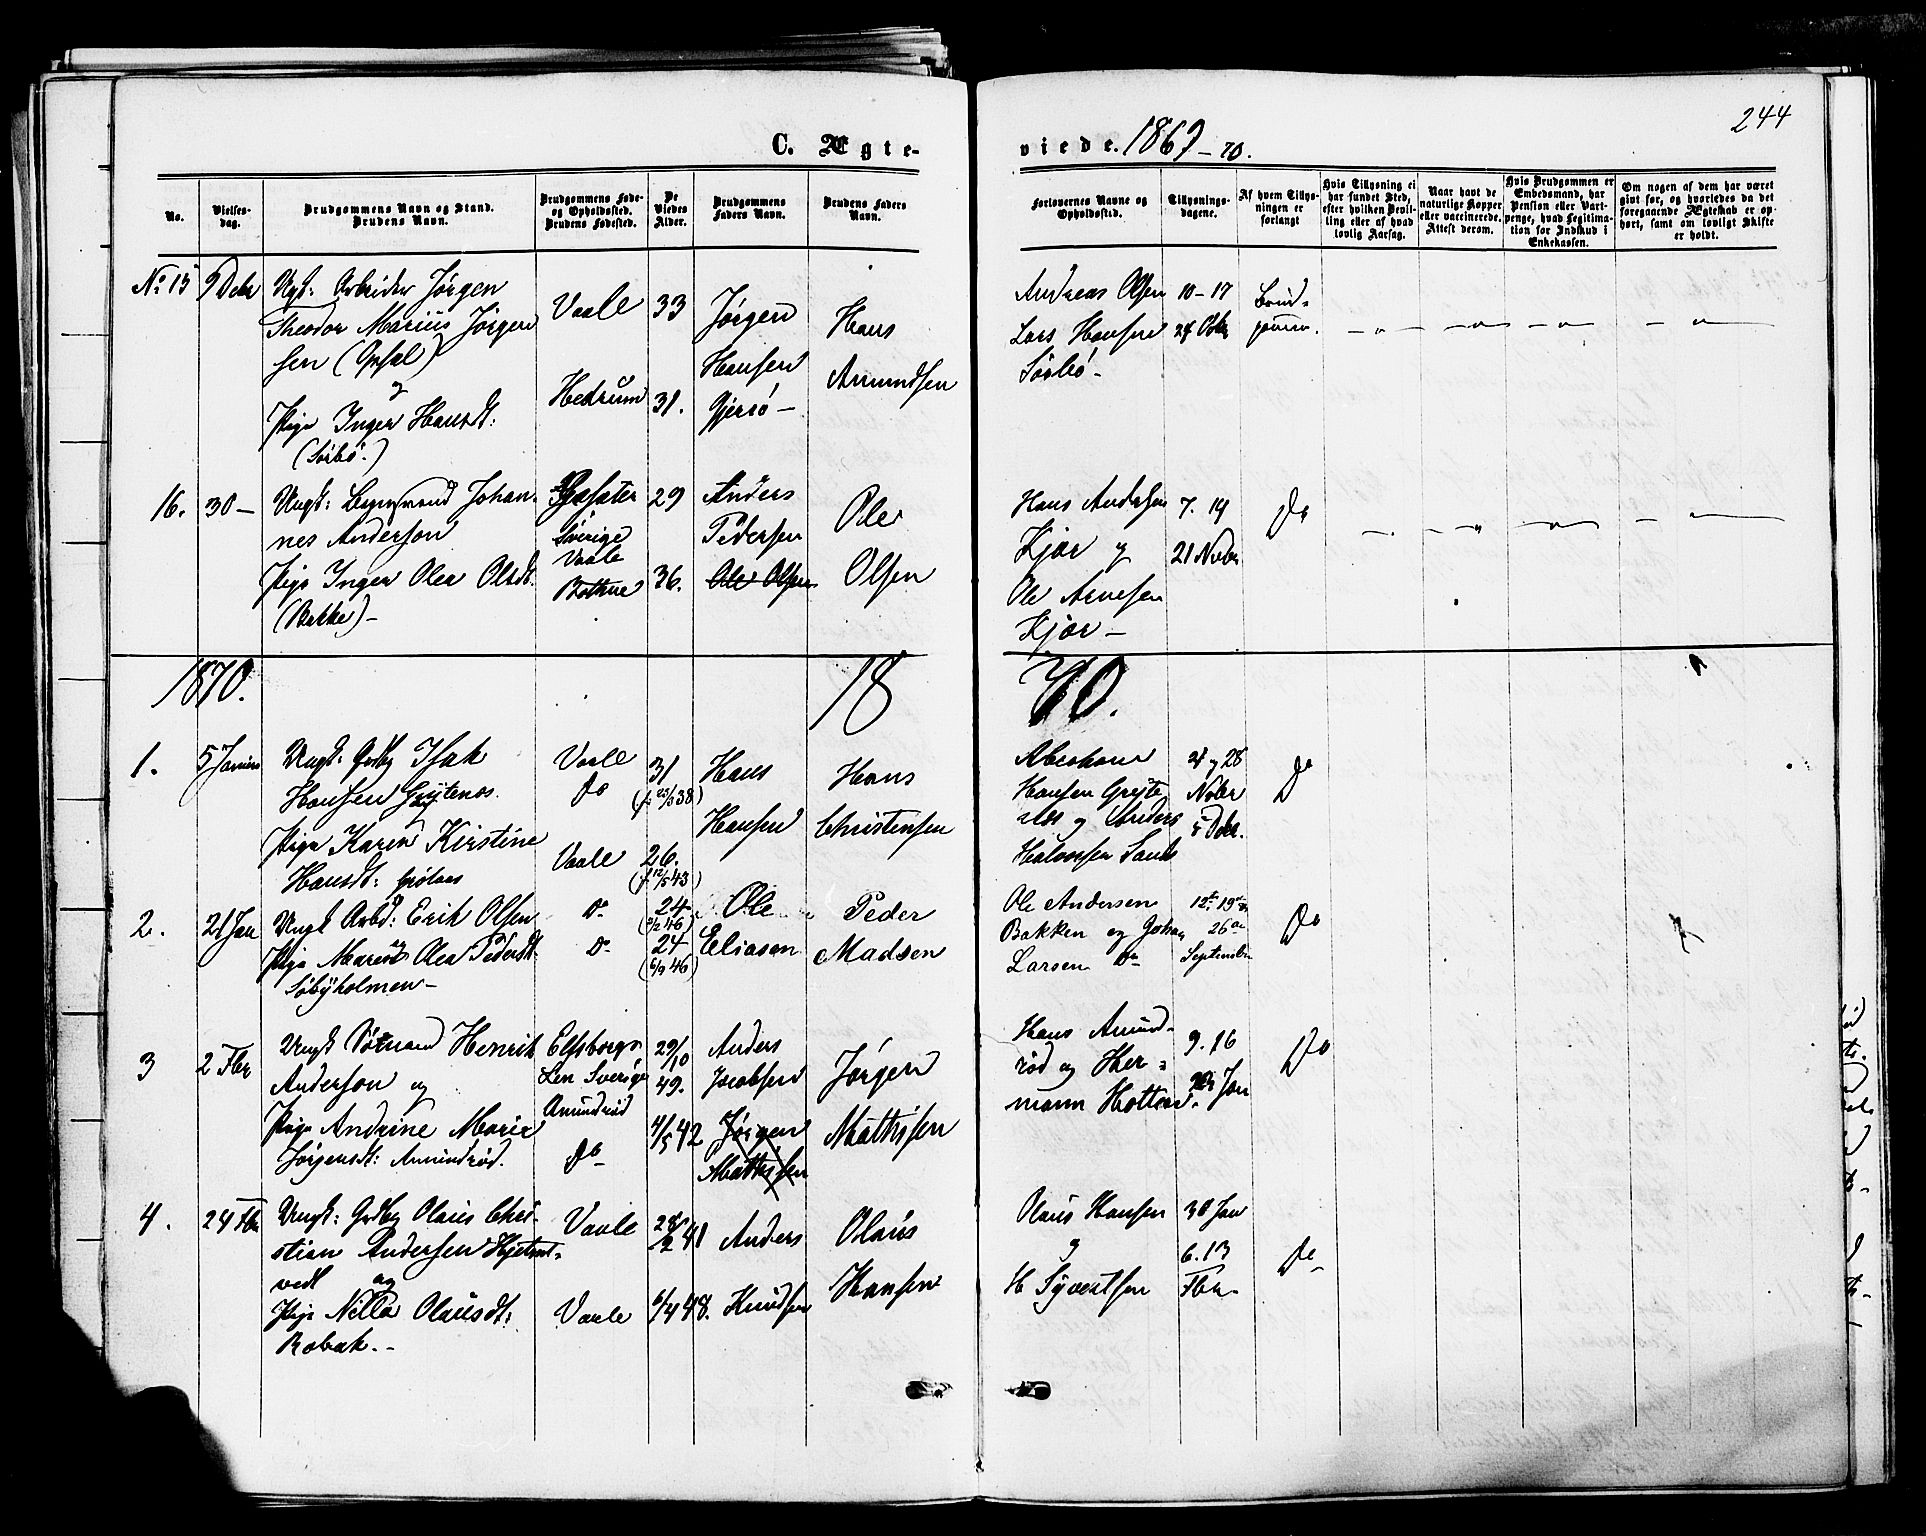 244
C. Ægte-
viede. 1869-70.
No.
Vielses-
dag.
Brudgommens Navn og Stand.
Brudens Navn.
Brudgommens Føde-
og Opholdssted.
Brudens Fødested.
De
Viedes
Alder.
Brudgommens
Faders Navn.
Brudens Faders
Navn.
Forlovernes Navne og
Opholdssted.
Tillysnings-
dagene.
Af hvem Tillys-
ningen er
forlangt
Hvis Tillysning ei
har fundet Sted,
efter hvilken Bevil-
ling eller af hvad
lovlig Aarsag.
Naar havt de
naturlige Kopper
eller vaccinerede.
Attest derom.
Hvis Brudgommen er
Embedsmand, har
Pension eller Vart-
penge, hvad Legitima-
tion for Indskud i
Enkekassen.
Om nogen af dem har været
gift før, og hvorledes da det
foregaaende Ægteskab er op-
hørt, samt om lovligt Skifte
er holdt.
No 15
9 Decbr
Ugt: Arbeider Jørgen
Theodor Marius Jørgen
sen (Opsal)
og
Pige Inger Hansdt:
(Sørbø.)
Vaale
Hedrum
33
31.
Jørgen
Hansen
Gjersø -
Hans
Amundsen
Andreas Olsen
Lars Hansen
Sørbø -
10-17
24 Octbr
Brud-
gommen.
16.
30 -
Ungk: Johan-
nes Anderson
Pige Inger Olea Olsdt.
(Bakke) -
Sverige
Vaale
Bothne
29
36.
Anders
Pedersen
Ole Olsen
Ole
Olsen
Hans Andersen
Kjær og
Ole Arnesen
Kjær -
7. 14
21 Novbr
Do
1870.
1870.
1.
5 Januar
Ungk: Grdbr Isak
Hansen Grytenos.
Pige Karen Kirstine
Hansdt:
Vaale
Do
Vaale
31
(f. 25/3 38)
26.
(f. 12/5 43)
Hans
Hansen
Hans
Christensen
Abraham
Hansen Gryte
nos og Anders
Halvorsen Sand
og 28
Novbr
5 Dcbr.
Do
2.
21 Jan
Ungk Arbd: Erik Olsen
og
Pige Maria Olea Pedersdt.
Søbyholmen -
Do
Do
24
(3/2 46)
24
(6/9 46)
Ole
Eliasen
Peder
Madsen
Ole Andersen
Bakken og Johan
Larsen Do
12te 19de
26de
September
Do
3
2 Fbr
Ungk Henrik
Anderson og
Pige Andrine Marie
Jørgensdt: Amundrød.
Elfsborgs
Len Sverige
Amundrød
Do
29/10
49.
4/5 42
Anders
Jacobsen
Jørgen
Mathisen
Jørgen
Mathisen
Hans Amund-
rød og Her-
mann
9. 16
Jan
Do
4.
24 Fbr
Ungk: Grdbr Olaus Chri-
stian Andersen
vedt og
Pige Nilla Olausdt:
Robak. -
Vaale
Vaale
28/2 41
6/4 48.
Anders
Knudsen
Olaus
Hansen
Olaus Hansen
og
H Syvertsen
30 Jan
6. 13
Fbr.
Do